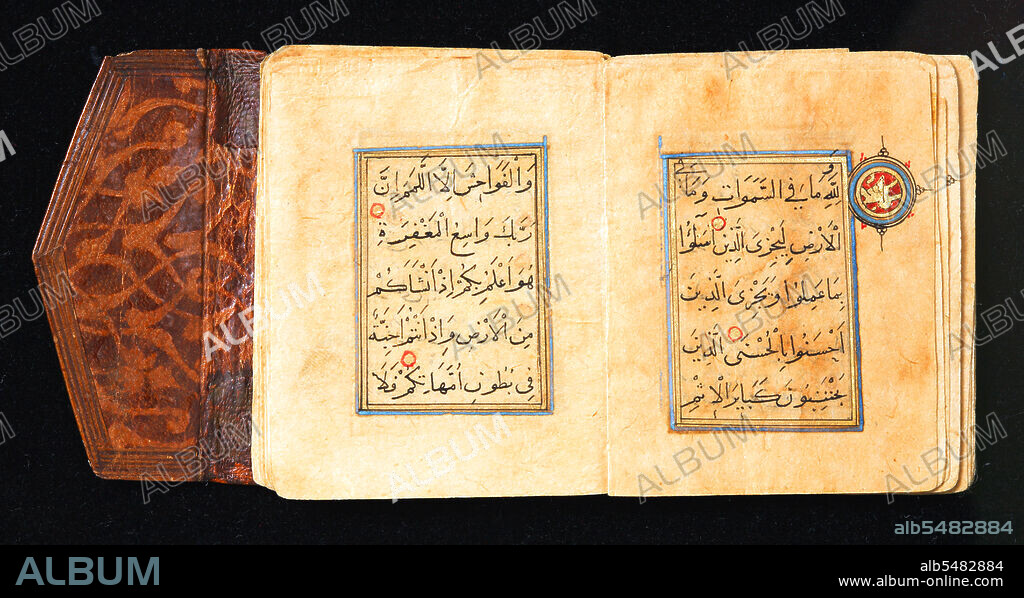 ولله ما في السموات وما في
الارض ليجزى الذين اسآؤا
بما عملوا ويجزى الذين
احسنوا بالحسنى الذين
يجتنبون كبائر الاثم
والفواحش الا اللمم ان
ربك واسع المغفرة
هو اعلم بكم اذ انشاكم
من الارض واذ انتم اجنة
في بطون امهاتكم فلا
ALBUM
alb5482884
ALBUM
alb5482884
www.album-online.com